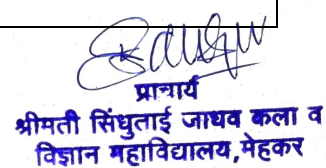 प्राचार्य
श्रीमती सिंधुताई जाधव कला व
विज्ञान महाविद्यालय, मेहकर